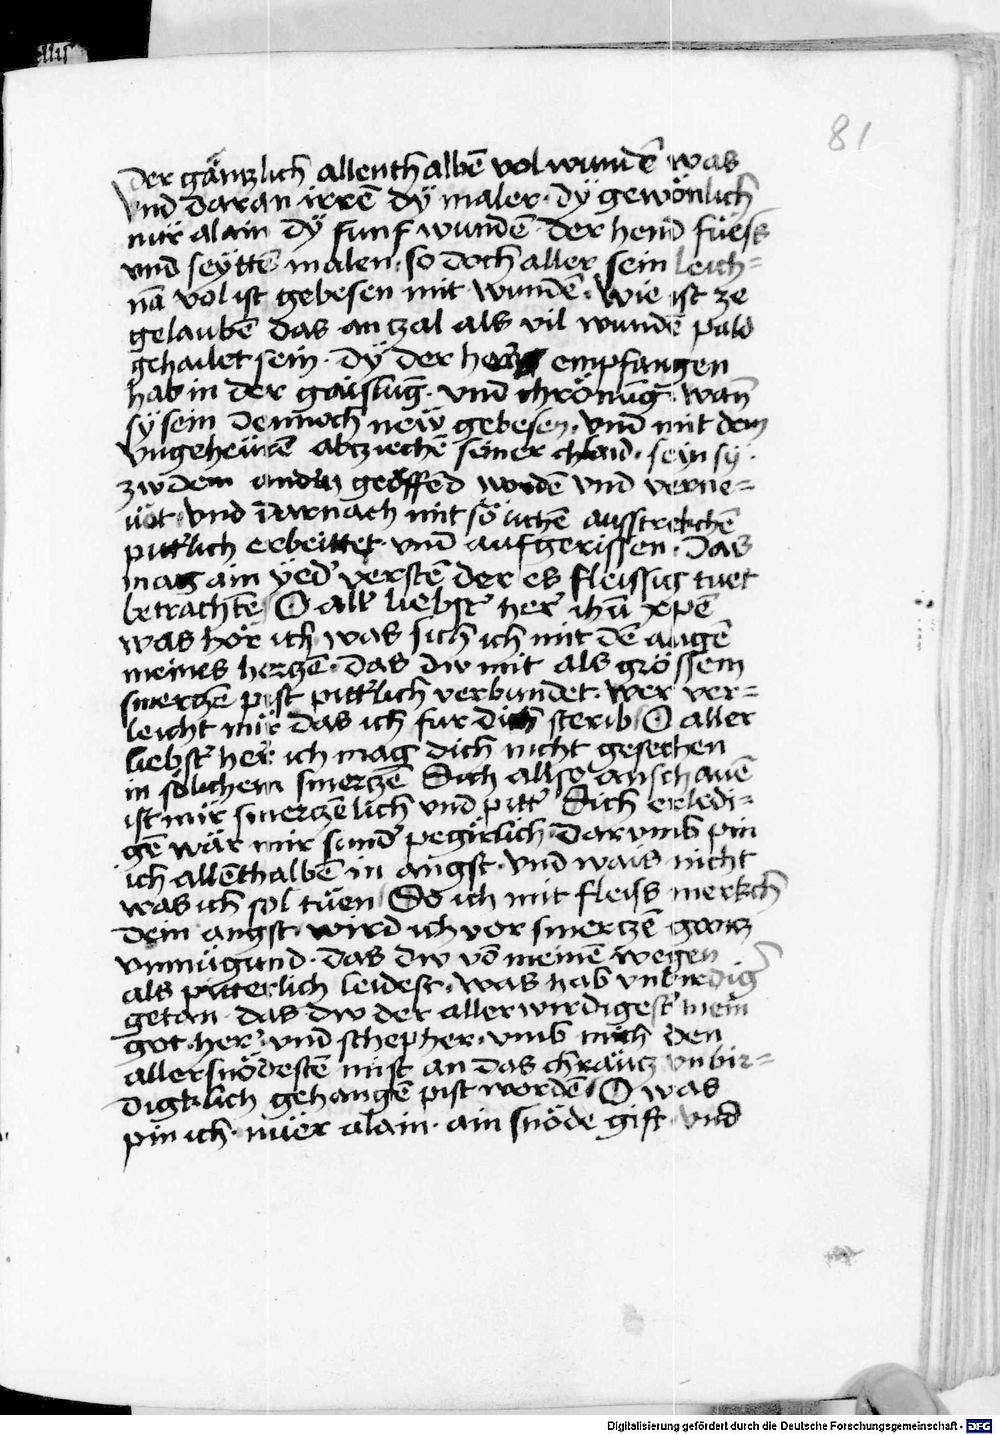 81
der gäntzlich allenthalbē vol wundē was
vnd daran irrē dÿ maler · dÿ gewönlich
nür alain dÿ funf wundē · der hend füess
vnd seÿttē malen · so doch aller sein leich=
nā vol ist gebesen mit wundē · wie ist ze
gelaubē das an tzal als vil wundē pald
gehailet sein · dÿ der her empfangen
hab in der gaislūg · vnd chrönūg · wañ
sÿ sein dennoch new gebesen · vnd mit dem
vngeheürē abziechē seiner chlaid · sein sÿ ·
zw dem andern geöffēd wordē vnd verne=
üöt · vnd darnach mit sölichē ausstrekchē
pittʼlich erbeittet · vnd aufgerissen · Das
mag ain ÿedʼ verstē der es fleissig tuet
betrachtē O allʼ liebstʼ herʼ ihū xp̄ē
was hör ich was sich ich mit dē augē
meines hertzē · das dw mit als grössem
smertzē pist pittʼlich verbundet · wer ver=
leicht mir das ich fur dich sterib O aller
liebstʼ herʼ ich mag dich nicht gesechen
in sölichem smertzē Dich allso anschauē
ist mir smertzēlich vnd pittʼ Dich erledi=
gē wär mir sundʼ pegirlich · Darumb pin
ich allēthalbē in angst · vnd wais nicht
was ich sol tüen So ich mit fleiss merkch
dein angst · wird ich vor smertzē gantz
vnmügund · das dw vō meinē wegen
als pitterlich leidest · was hab vnbirdigʼ
getan · das dw der allerwirdigestʼ mein
got · herʼ · vnd schepher · vmb mich den
allersnödestē mist an das chräutz vnbir=
digklich gehangē pist wordē O was
pin ich · nüer alain · ain snöde gift · vnd
Digitalisierung gefördert durch die Deutsche Forschungsgemeinschaft - DFG